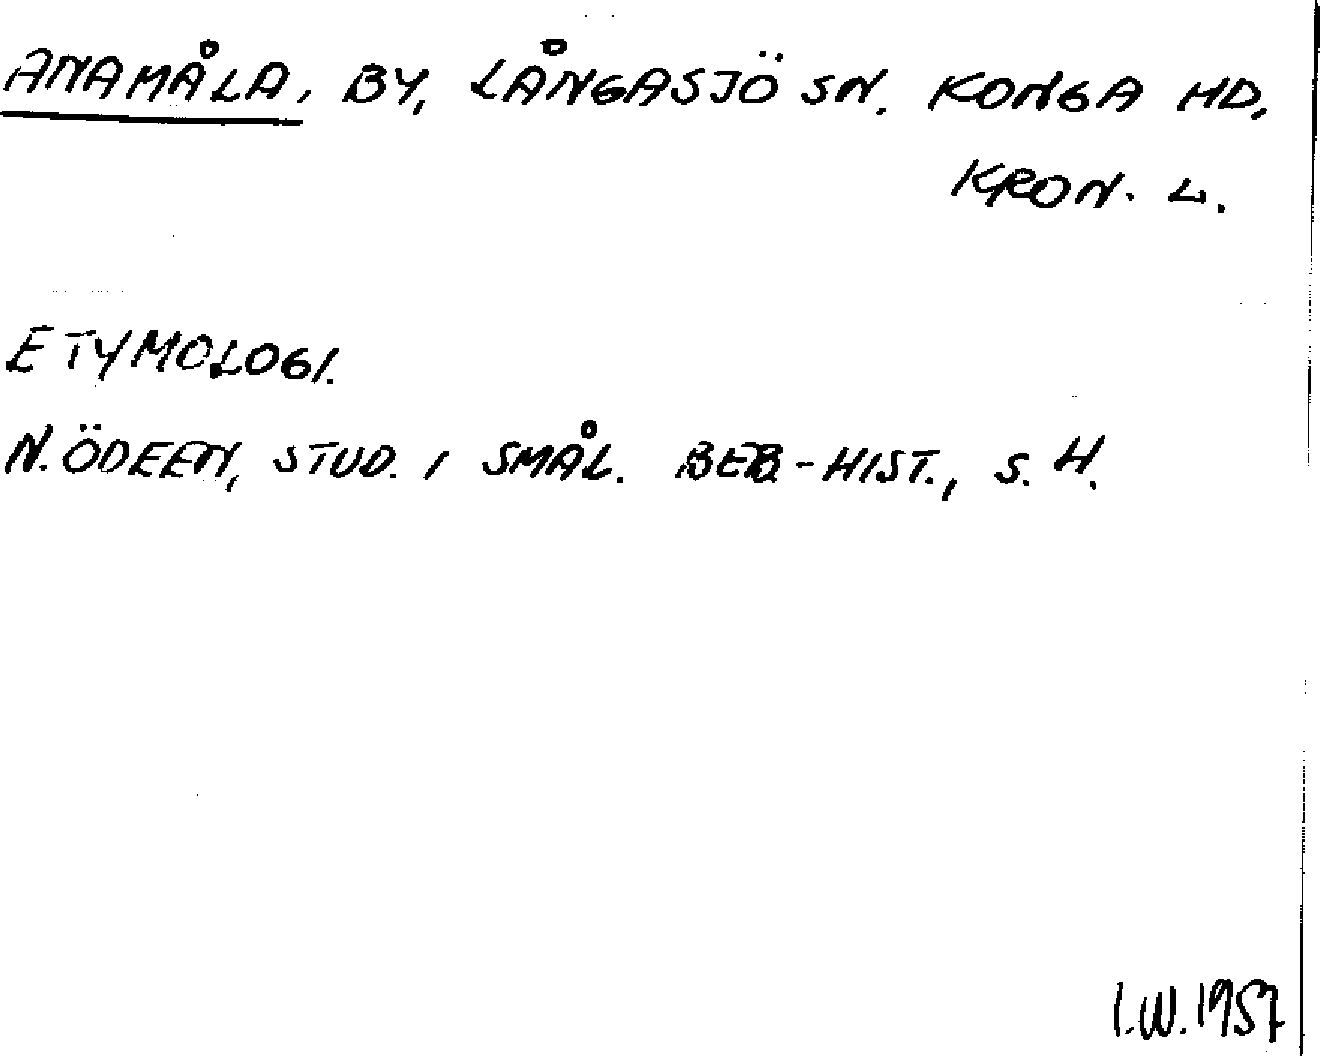 ANAMÅLA, BY, LÅNGASJÖ SN. KONGA HD,
KRON. L.
ETYMOLOGI.
N. ÖDEEN, STUD. I SMÅL. BEB-HIST., S. 4.
I.W. 1957